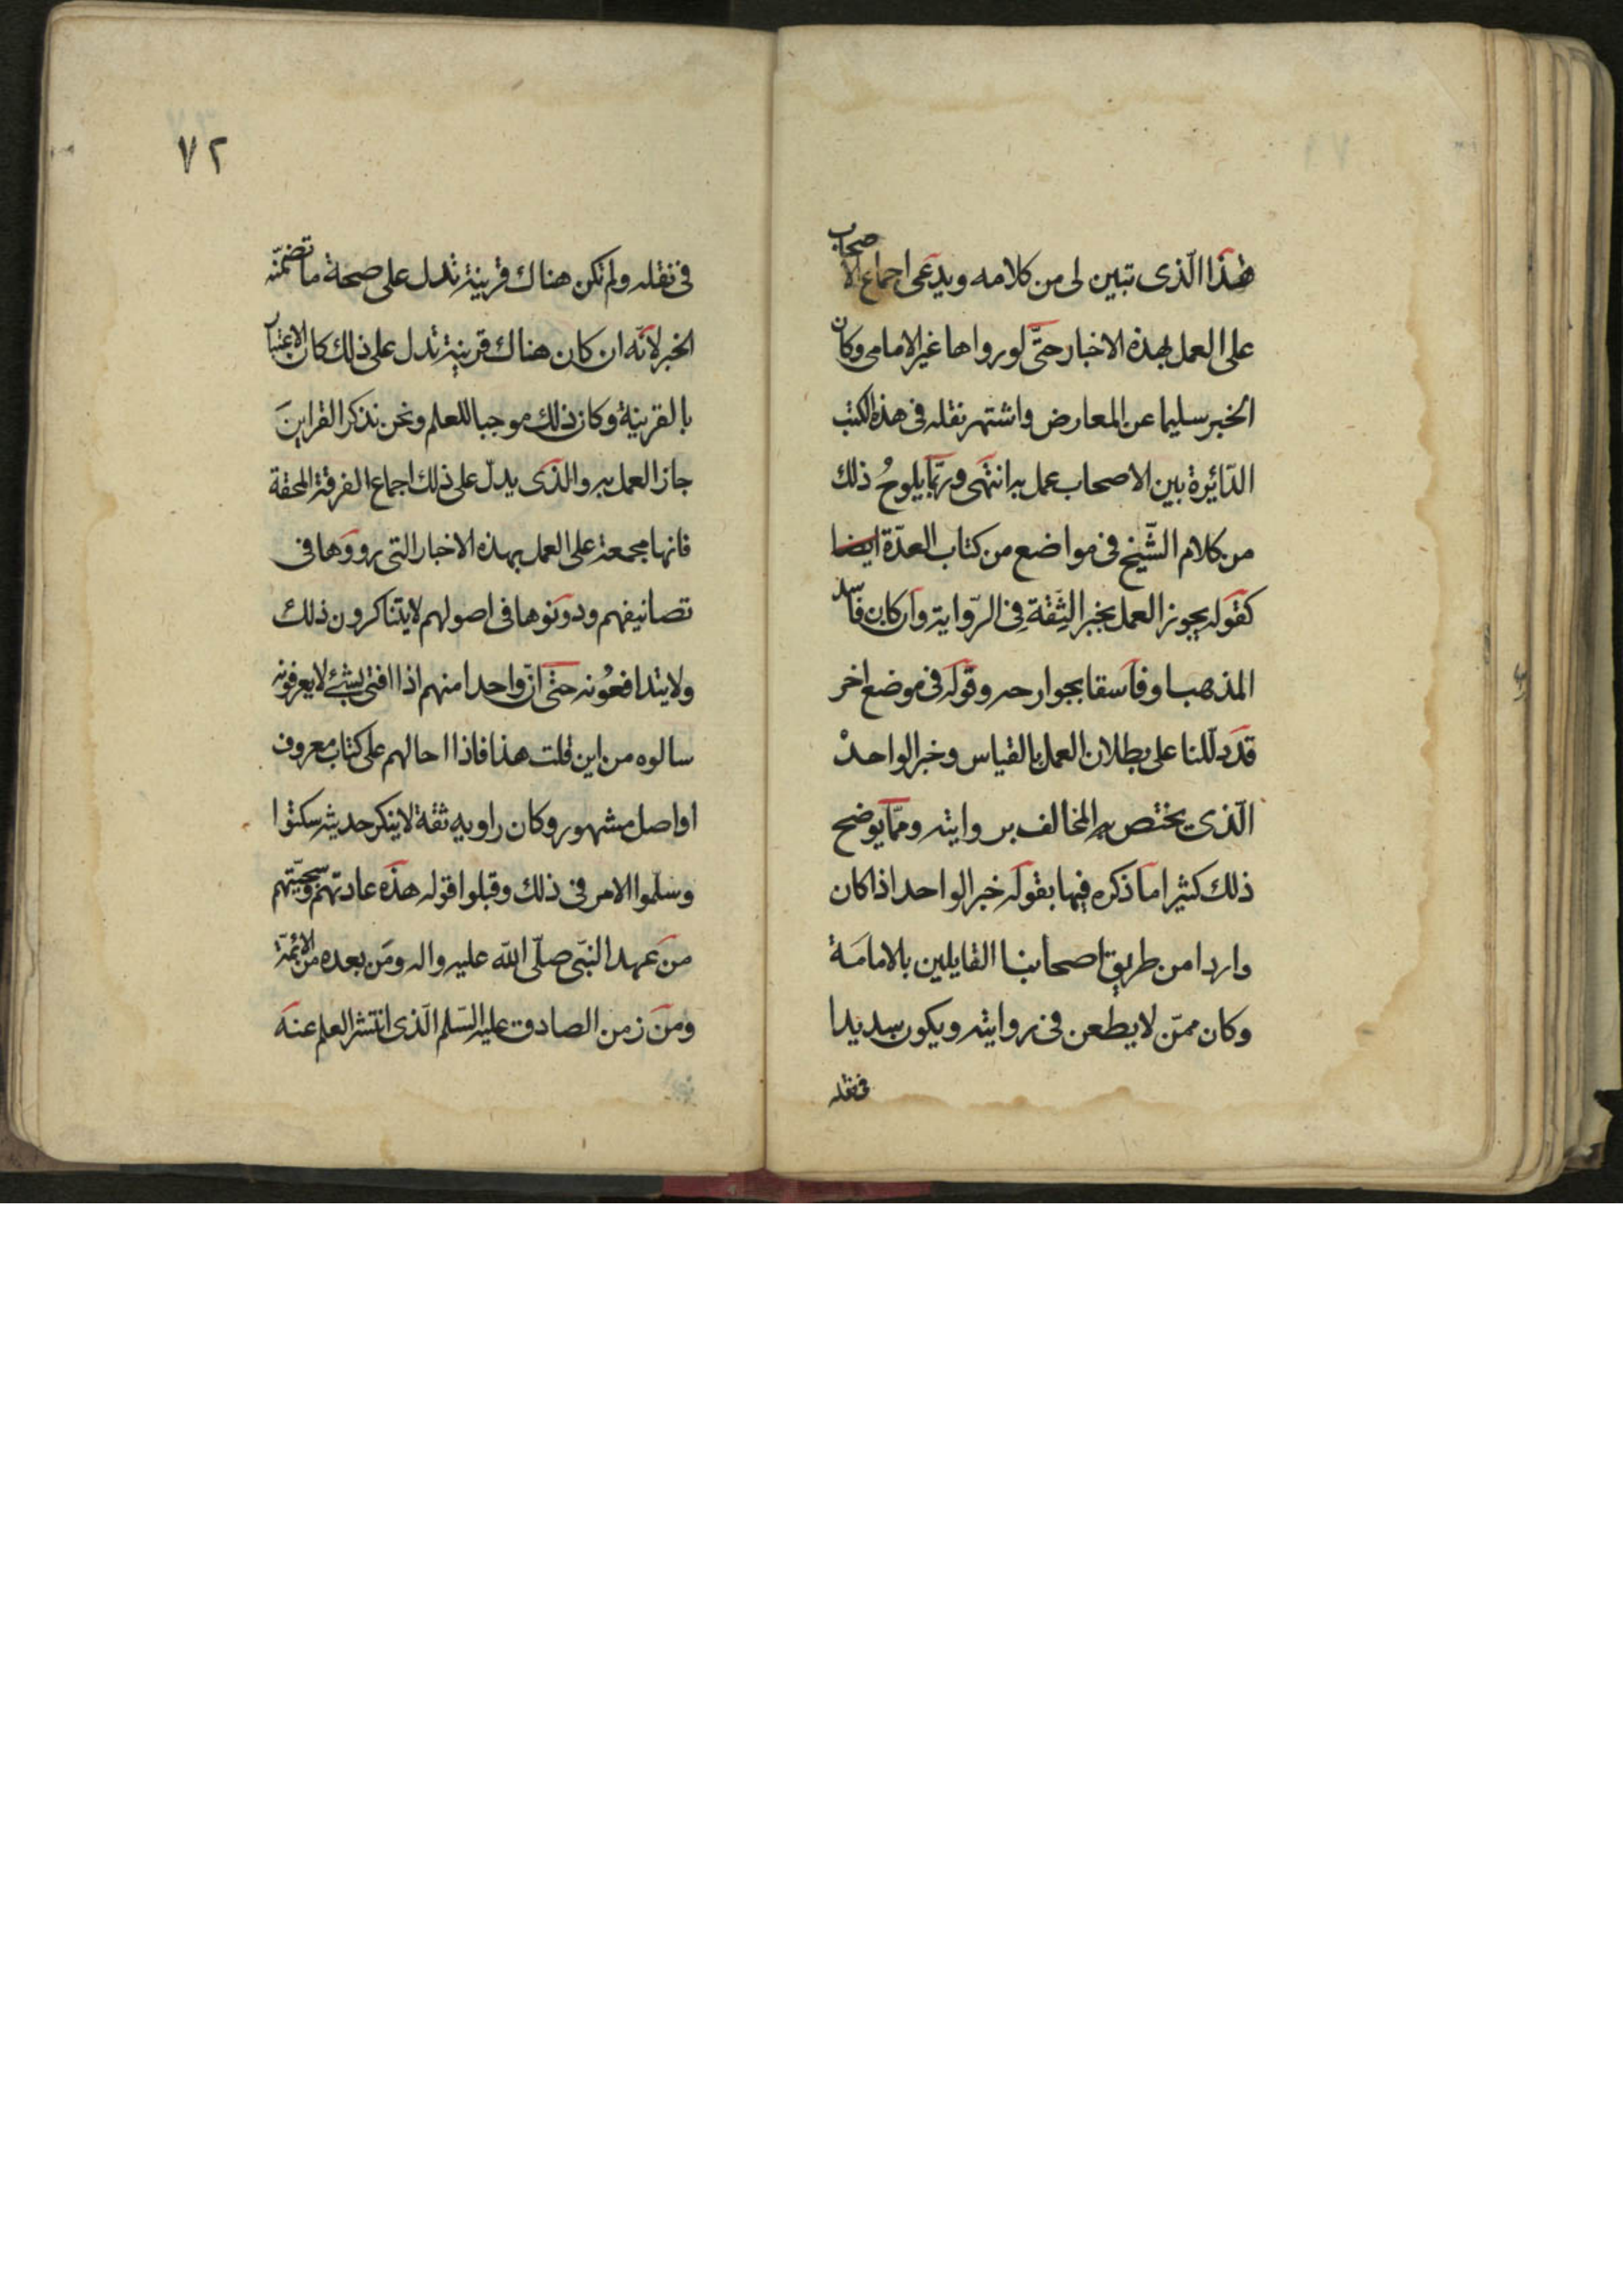 هذا الّذى تبين لى من كلامه ويدعى اجماع الاصحاب
على العمل بهذه الاخبار حتّى لو رواها غير الامامى وكان
الخبر سليما عن المعارض واشتهر نقله فى هذه الكتب
الدّائرة بين الاصحاب عمل به انتهى وربّما يلوحُ ذلك
من كلام الشّيخ فى مواضع من كتاب العدّة ايضا
كقوله يجوز العمل بخبر الثِّقَة فِى الرّواية وان كان فاسد
المذهب او فاسقا بجوارحه وقوله فى موضع اخر
قد دلّلنا على بطلان العمل بالقياس وخبر الواحدْ
الّذى يختص به المخالف بروايته وممّا يوضح
ذلك كثيرا ما ذكره فيها بقوله خبر الواحد اذا كان
واردا من طريق اصحابنا القايلين بالامامَة
وكان ممّن لا يطعن فى روايته ويكون سديدا
فى نقله
٧٢
فى نقله ولم تكن هناك قرينة تدل على صحة ما تضمّنه
الخبر لانّه ان كان هناك قرينة تدل على ذلك كان الاعتبار
بالقرينة وكان ذلك موجبا للعلم ونحن نذكر القراينَ
جاز العمل به والذى يدلّ على ذلك اجماع الفرقة المحقة
فانها مجمعة على العمل بهذه الاخبار التى رووها فى
تصانيفهم ودونوها فى اصولهم لا يتناكرون ذلك
ولا يتدافعُونه حتّى انّ واحدا منهم اذا افتى بشئ لا يعرفونه
سالوه من اين قلت هذا فاذا احالهم على كتاب معروف
او اصل مشهور وكان راويه ثقة لا ينكر حديثه سكتوا
وسلّموا الامر فى ذلك وقبلوا قوله هذه عادتهم وسجيّتهم
من عهد النبّى صلّى اللّه عليه واله ومن بعده من الائمّة
ومن زمن الصادق عليه السّلم الّذى انتشر العلم عنه